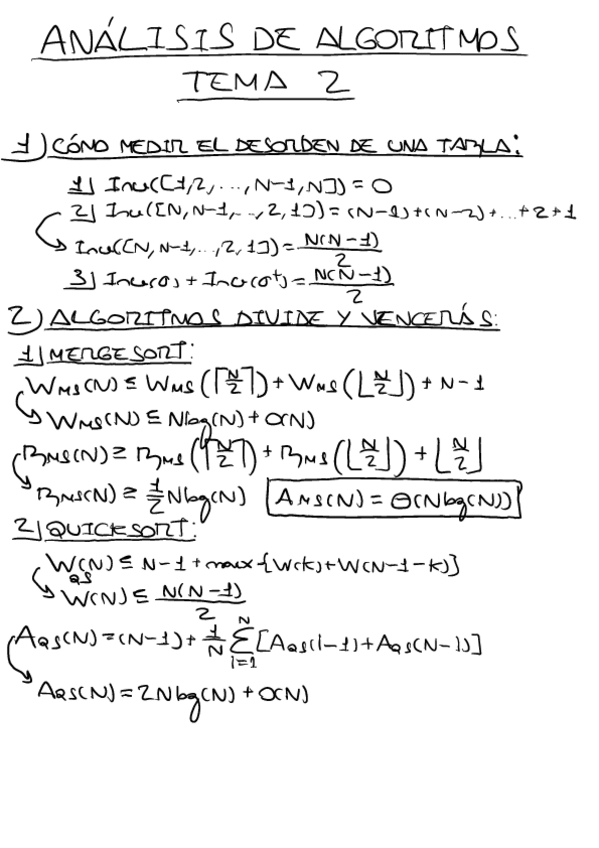 ANÁLISIS DE ALGORITMOS
TEMA 2
1) CÓMO MEDIR EL DESORDEN DE UNA TABLA:
1) Inv([1,2,...,N-1,N]) = 0
2) Inv([N,N-1,...,2,1]) = (N-1)+(N-2)+...+2+1
↳ Inv([N,N-1,...,2,1]) = N(N-1)/2
3) Inv(σ) + Inv(σᵗ) = N(N-1)/2
2) ALGORITMOS DIVIDE Y VENCERÁS:
1) MERGESORT:
W_MS(N) ≤ W_MS(⌈N/2⌉) + W_MS(⌊N/2⌋) + N-1
↳ W_MS(N) ≤ Nlog(N) + O(N)
B_MS(N) ≥ B_MS(⌈N/2⌉) + B_MS(⌊N/2⌋) + ⌊N/2⌋
↳ B_MS(N) ≥ 1/2 Nlog(N) A_MS(N) = Θ(Nlog(N))
2) QUICKSORT:
W_QS(N) ≤ N-1 + max{W(k)+W(N-1-k)}
↳ W(N) ≤ N(N-1)/2
A_QS(N) = (N-1) + 1/N Σ_{i=1}^{N} [A_QS(i-1)+A_QS(N-i)]
↳ A_QS(N) = 2Nlog(N) + O(N)